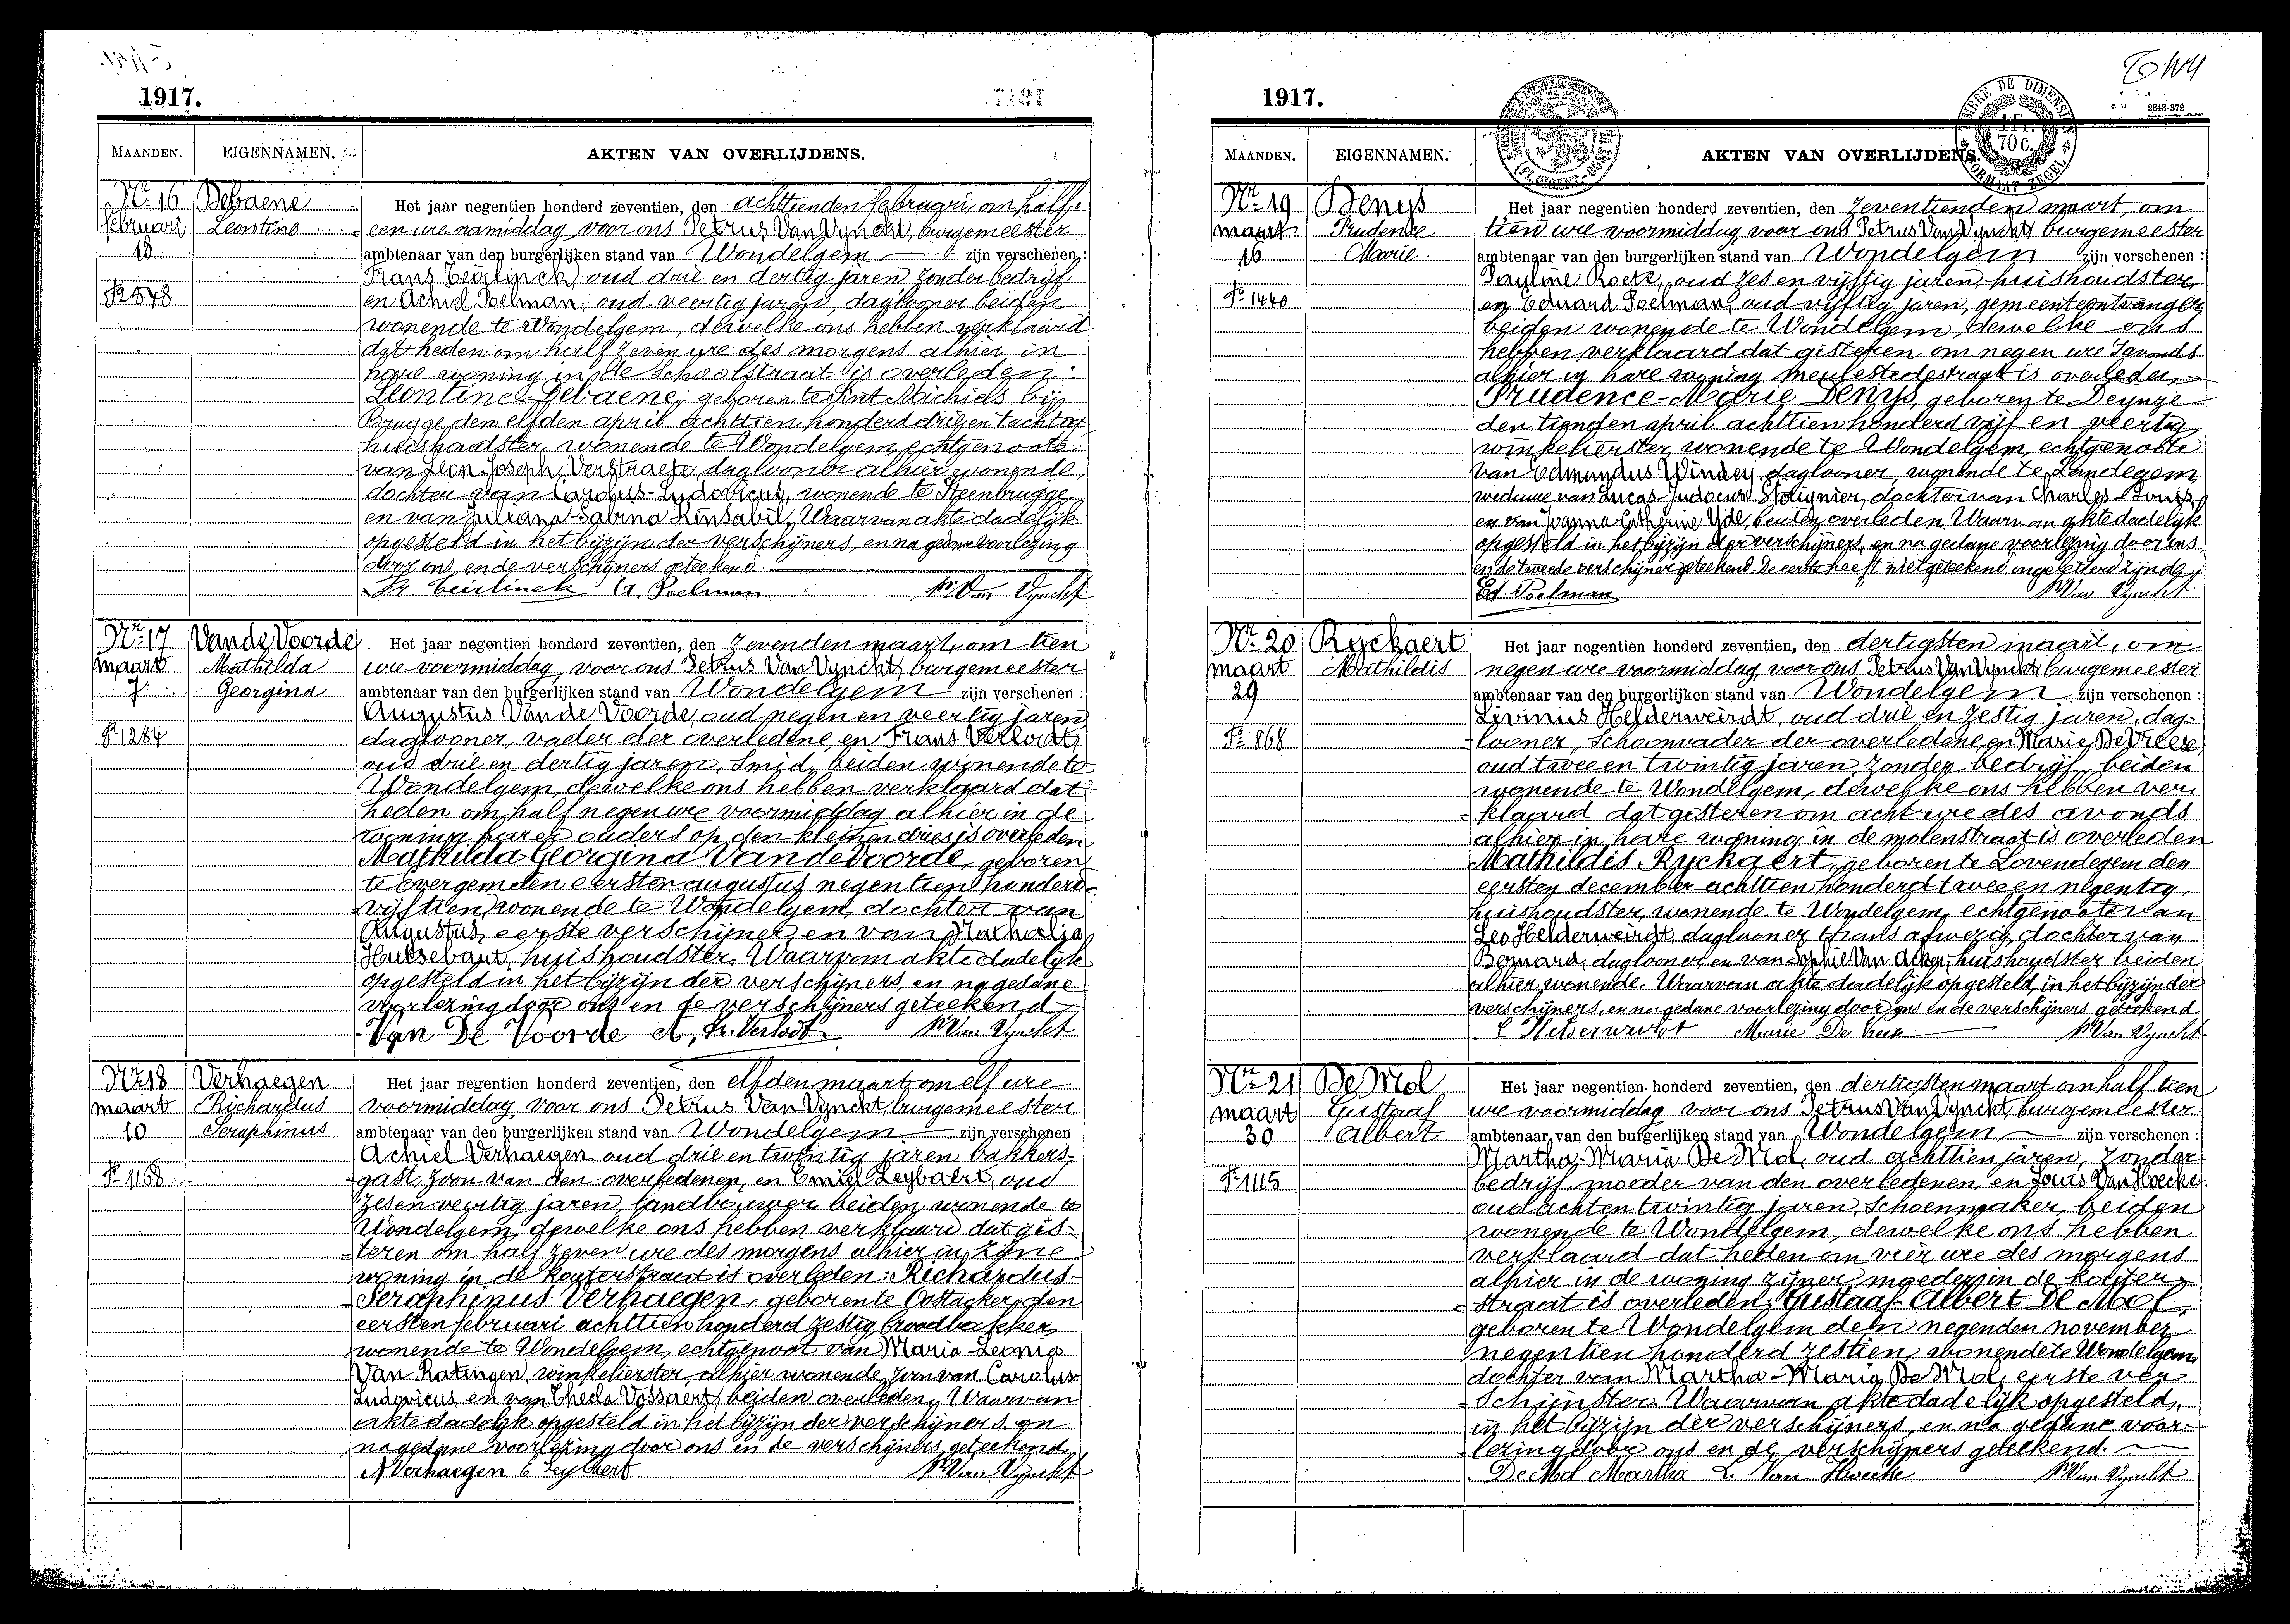 1917.
MAANDEN. EIGENNAMEN. AKTEN VAN OVERLIJDENS.
Nr. 16 Debaene Het jaar negentien honderd zeventien, den achttienden februari, om half
februari Leontine een ure namiddag, voor ons Petrus Van Vynckt, burgemeester
18 ambtenaar van den burgerlijken stand van Wondelgem zijn verschenen:
Frans Ceirlinck, oud drie en dertig jaren, zonder bedrijf
Nr 548 en Achiel Poelman, oud veertig jaren, daglooner beiden
wonende te Wondelgem, dewelke ons hebben verklaard
dat heden om half zeven ure des morgens alhier in
hare woning in de Schoolstraat is overleden:
Leontine Debaene, geboren te Sint Michiels bij
Brugge den elfden april achttien honderd drie en tachtig
huishoudster, wonende te Wondelgem, echtgenoote
van Leon Joseph Verstraete, daglooner alhier wonende,
dochter van Carolus-Ludovicus, wonende te Steenbrugge
en van Juliana-Sabina Rinsabil. Waarvan akte dadelijk
opgesteld in het bijzijn der verschijners, en na gedane voorlezing
door ons en de verschijners geteekend
Fr. Ceirlinck A. Poelman P. Van Vynckt
Nr. 17 Van de Voorde Het jaar negentien honderd zeventien, den zevenden maart, om tien
maart Mathilda ure voormiddag, voor ons Petrus Van Vynckt, burgemeester
7 Georgina ambtenaar van den burgerlijken stand van Wondelgem zijn verschenen:
Augustus Van de Voorde, oud negen en veertig jaren
Nr 1284 daglooner, vader der overledene, en Frans Verlodt,
oud drie en dertig jaren, Smid, beiden wonende te
Wondelgem, dewelke ons hebben verklaard dat
heden om half negen ure voormiddag alhier in de
woning harer ouders op den kleinen dries is overleden
Mathilda Georgina Van de Voorde, geboren
te Evergem den eersten augustus negentien honderd
vijftien, wonende te Wondelgem, dochter van
Augustus, eerste verschijner, en van Nathalia
Hutsebaut, huishoudster. Waarvan akte dadelijk
opgesteld in het bijzijn der verschijners, en na gedane
voorlezing door ons en de verschijners geteekend
Van De Voorde A, Fr. Verlodt P. Van Vynckt
Nr. 18 Verhaegen Het jaar negentien honderd zeventien, den elfden maart, om elf ure
maart Richardus voormiddag, voor ons Petrus Van Vynckt, burgemeester
10 Seraphinus ambtenaar van den burgerlijken stand van Wondelgem zijn verschenen
Achiel Verhaegen, oud drie en twintig jaren bakkers-
Nr 1168 gast, zoon van den overledenen, en Emiel Leybaert, oud
zes en veertig jaren, landbouwer beiden wonende te
Wondelgem, dewelke ons hebben verklaard dat gis-
teren om half zeven ure des morgens alhier in zijne
woning in de kouterstraat is overleden: Richardus
Seraphinus Verhaegen, geboren te Oostacker, den
eersten februari achttien honderd zestig, broodbakker,
wonende te Wondelgem, echtgenoot van Maria-Leonia
Van Ratingen, winkelierster, alhier wonende, zoon van Carolus
Ludovicus en van Thecla Vossaert, beiden overleden. Waarvan
akte dadelijk opgesteld in het bijzijn der verschijners en
na gedane voorlezing door ons en de verschijners geteekend
A Verhaegen E Leybaert P. Van Vynckt
1917.
2343-372
TIMBRE DE DIMENSION 1 Fr. 70 C. FORMAAT ZEGEL
MAANDEN. EIGENNAMEN. AKTEN VAN OVERLIJDENS.
Nr. 19 Denys Het jaar negentien honderd zeventien, den zeventienden maart, om
maart Prudence tien ure voormiddag, voor ons Petrus Van Vynckt, burgemeester
16 Marie ambtenaar van den burgerlijken stand van Wondelgem zijn verschenen:
Pauline Roets, oud zes en vijftig jaren, huishoudster,
Nr 1440 en Eduard Poelman, oud vijftig jaren, gemeenteontvanger
beiden wonende te Wondelgem, dewelke ons
hebben verklaard dat gisteren om negen ure 's avonds
alhier in hare woning meulestedestraat is overleden,
Prudence-Marie Denys, geboren te Deynze
den tienden april achttien honderd vijf en veertig,
winkelierster, wonende te Wondelgem, echtgenoote
van Edmundus Windey, daglooner, wonende te Landegem,
weduwe van Lucas-Judocus Stolignier, dochter van Charles-Louis,
en van Joanna-Catherine Yde, beiden overleden. Waarvan akte dadelijk
opgesteld in het bijzijn der verschijners, en na gedane voorlezing door ons
en de tweede verschijner geteekend. De eerste heeft niet geteekend ongeletterd zijnde
Ed. Poelman P. Van Vynckt
Nr. 20 Ryckaert Het jaar negentien honderd zeventien, den dertigsten maart, om
maart Mathildis negen ure voormiddag, voor ons Petrus Van Vynckt, burgemeester
29 ambtenaar van den burgerlijken stand van Wondelgem zijn verschenen:
Livinus Helderweirdt, oud drie en zestig jaren, dag-
Nr 868 looner, Schoonvader der overledene, en Marie De Vreese,
oud twee en twintig jaren, zonder bedrijf, beiden
wonende te Wondelgem, dewelke ons hebben ver-
klaard dat gisteren om acht ure des avonds
alhier in hare woning in de molenstraat is overleden
Mathildis Ryckaert, geboren te Lovendegem den
eersten december achttien honderd twee en negentig,
huishoudster, wonende te Wondelgem, echtgenoote van
Leo Helderweirdt, daglooner thans afwezig, dochter van
Bernard, daglooner, en van Sophie Van Acker, huishoudster beiden
alhier wonende. Waarvan akte dadelijk opgesteld, in het bijzijn der
verschijners, en na gedane voorlezing door ons en de verschijners geteekend
Marie De P. Van Vynckt
Nr. 21 De Mol Het jaar negentien honderd zeventien, den dertigsten maart om half tien
maart Gustaaf ure voormiddag voor ons Petrus Van Vynckt, burgemeester
30 Albert ambtenaar van den burgerlijken stand van Wondelgem zijn verschenen:
Martha-Maria De Mol, oud achttien jaren, zonder
Nr 1115 bedrijf, moeder van den overledenen, en Louis Van Hoecke,
oud acht en twintig jaren, Schoenmaker, beiden
wonende te Wondelgem, dewelke ons hebben
verklaard dat heden om vier ure des morgens
alhier in de woning zijner moeder in de kouter-
straat is overleden: Gustaaf Albert De Mol,
geboren te Wondelgem den negenden november
negentien honderd zestien, wonende te Wondelgem,
dochter van Martha-Maria De Mol, eerste ver-
schijnster. Waarvan akte dadelijk opgesteld,
in het bijzijn der verschijners, en na gedane voor-
lezing door ons en de verschijners geteekend.
De Mol Martha L. Van Hoecke P. Van Vynckt